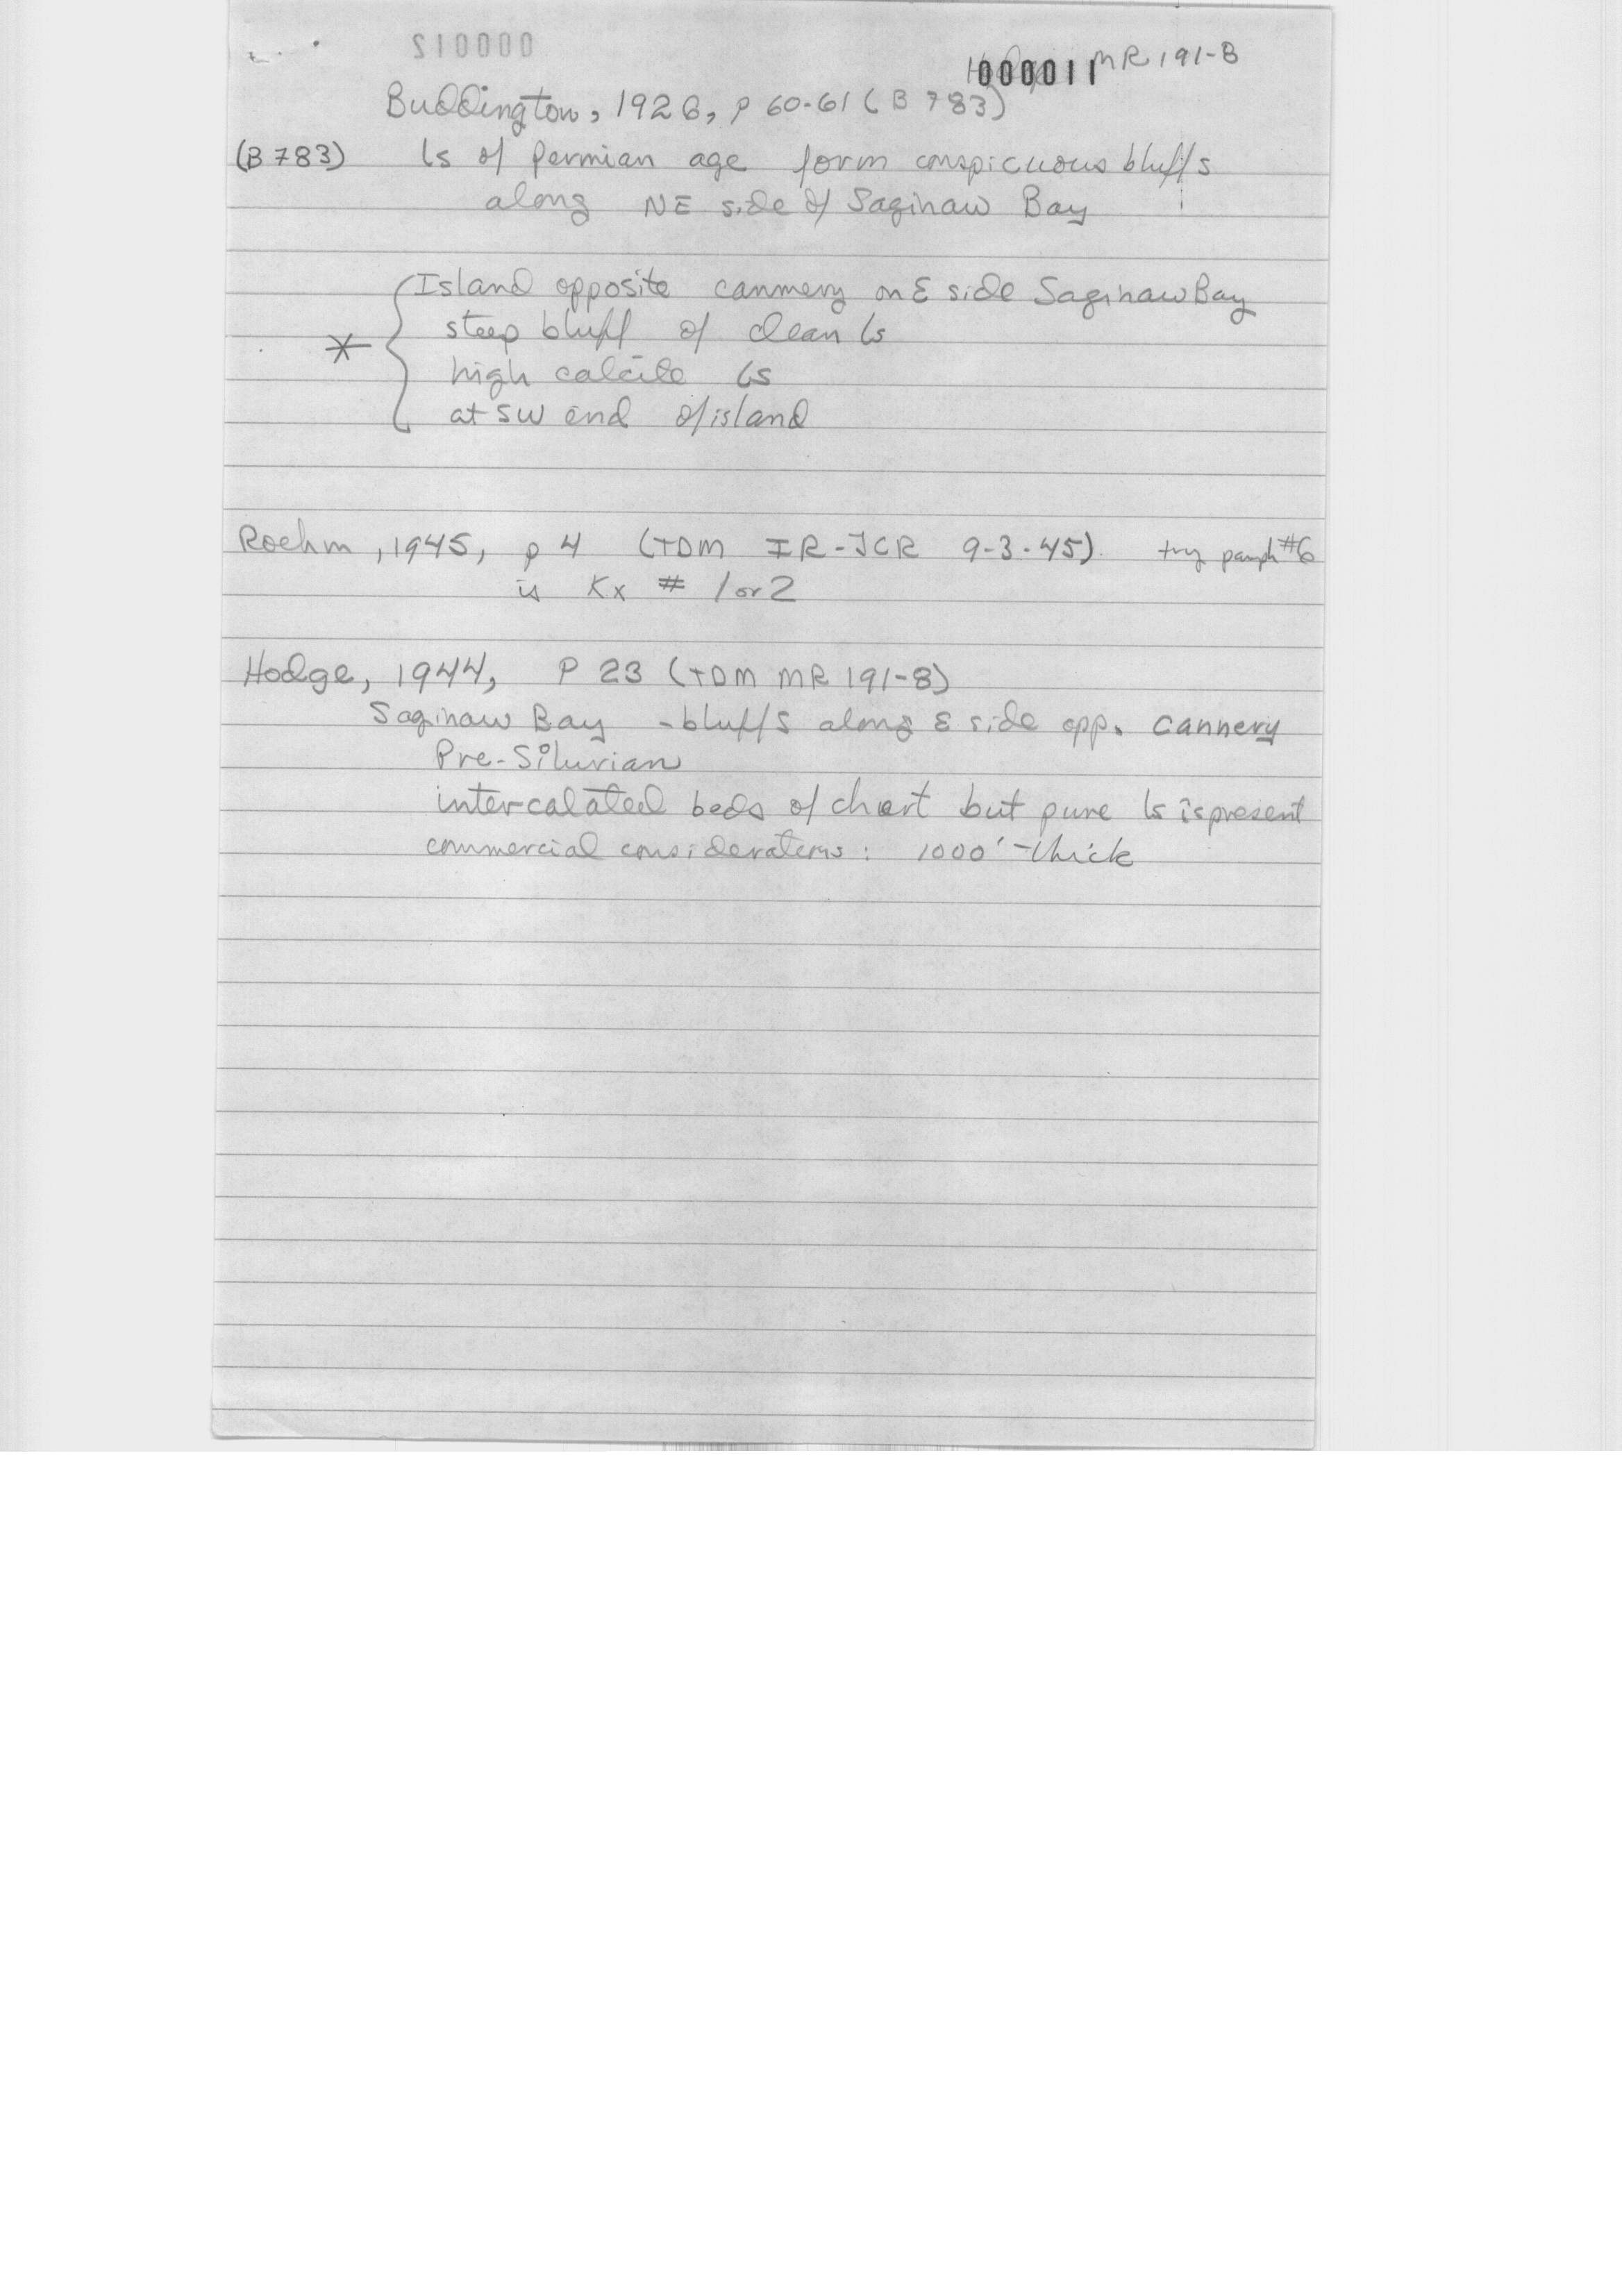 000012
000011 MR 191-B
Buddington, 1926, p 60-61 (B 783)
(B 783) ls of Permian age form conspicuous bluffs
along NE side of Saginaw Bay
Island opposite cannery on E side Saginaw Bay
steep bluff of clean ls
* high calcite ls
at SW end of island
Roehm, 1945, p 4 (TDM IR-JCR 9-3-45) try pamph #6
is Kx # 1 or 2
Hodge, 1944, P 23 (TDM MR 191-8)
Saginaw Bay - bluffs along E side opp. cannery
Pre-Silurian
intercalated beds of chert but pure ls is present
commercial considerations: 1000' thick